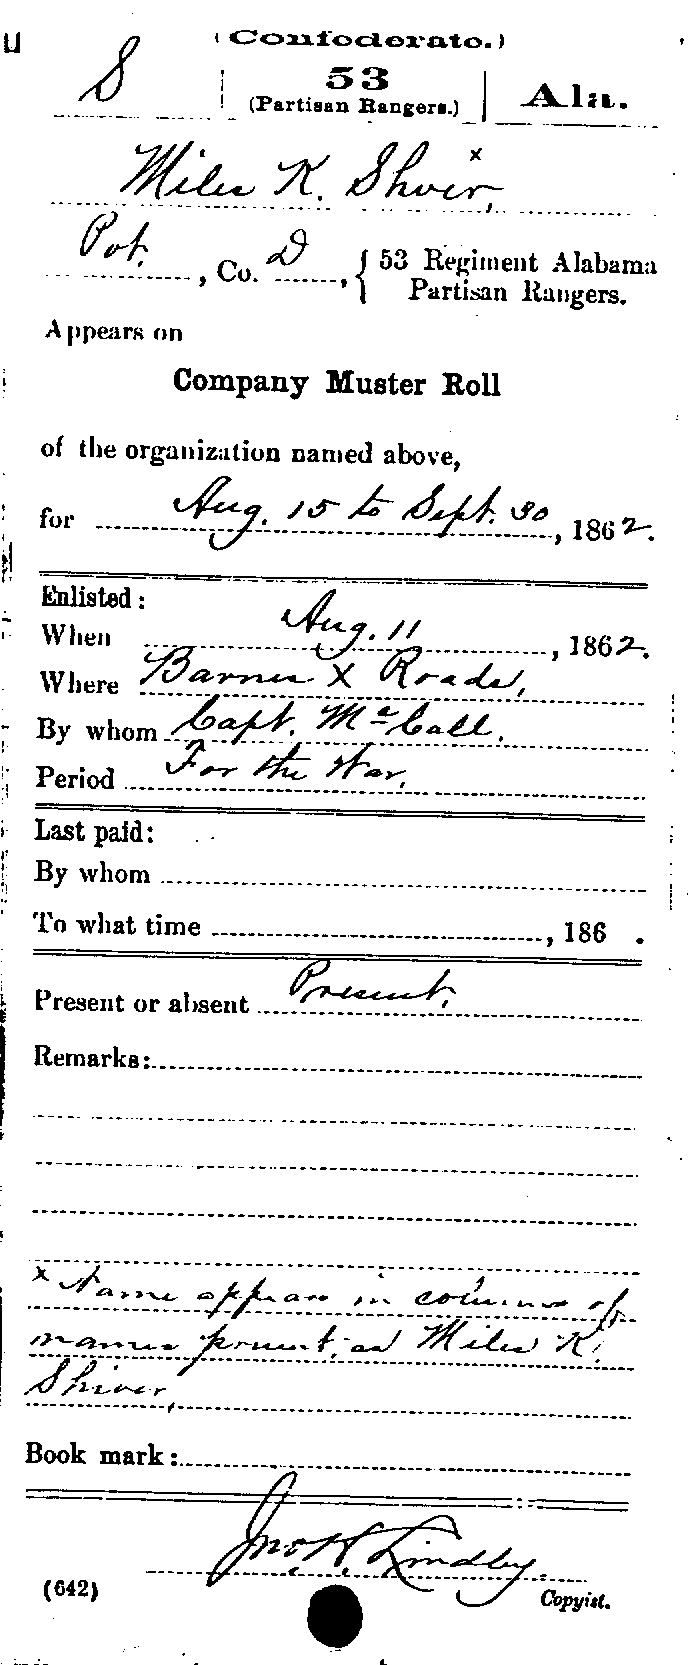 (Confederate.)
S | 53 (Partisan Rangers.) | Ala.
Miles K. Shoir, x
Pvt., Co. D, { 53 Regiment Alabama
Partisan Rangers.
Appears on
Company Muster Roll
of the organization named above,
for Aug. 15 to Sept. 30, 1862.
Enlisted:
When Aug. 11, 1862.
Where Barnes X Roads,
By whom Capt. McCall.
Period For the War.
Last paid:
By whom
To what time , 186 .
Present or absent Present.
Remarks:
x Name appears in column of
names present, as Miles K.
Shiver,
Book mark:
Jno. H. Lindley.
(642) Copyist.